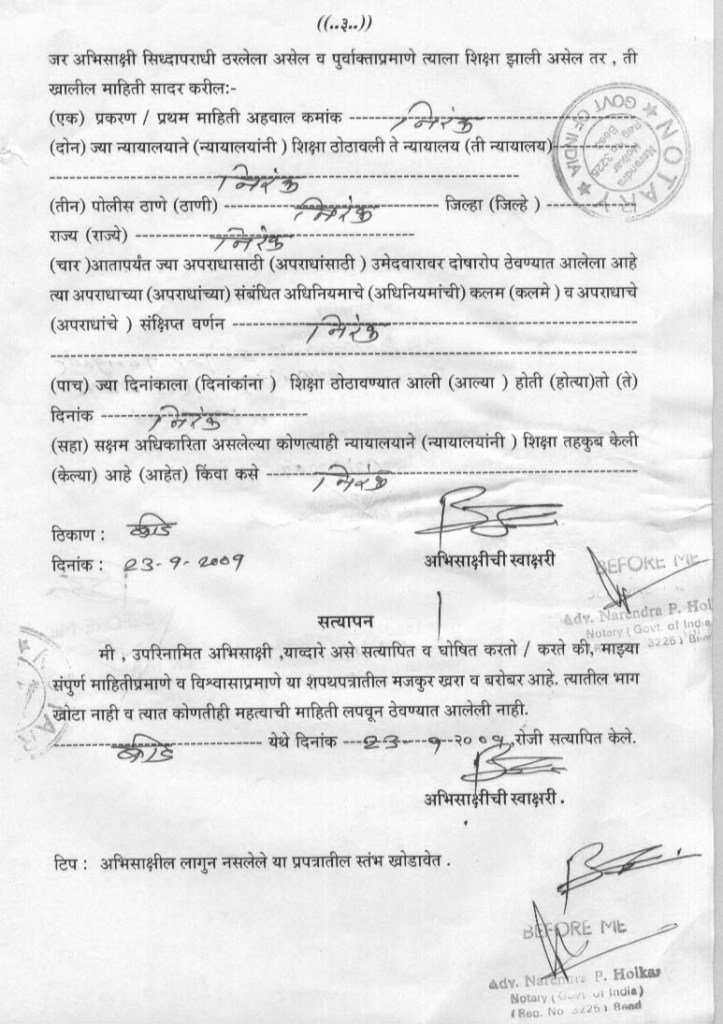 ((..३..))
जर अभिसाक्षी सिध्दापराधी ठरलेला असेल व पुर्वाक्ताप्रमाणे त्याला शिक्षा झाली असेल तर , ती
खालील माहिती सादर करील:-
(एक) प्रकरण / प्रथम माहिती अहवाल कमांक ---------- निरंक ----------
(दोन) ज्या न्यायालयाने (न्यायालयांनी ) शिक्षा ठोठावली ते न्यायालय (ती न्यायालय)----------
---------- निरंक ----------
(तीन) पोलीस ठाणे (ठाणी) ---------- निरंक ---------- जिल्हा (जिल्हे ) ----------
राज्य (राज्ये) ---------- निरंक ----------
(चार )आतापर्यंत ज्या अपराधासाठी (अपराधांसाठी ) उमेदवारावर दोषारोप ठेवण्यात आलेला आहे
त्या अपराधाच्या (अपराधांच्या) संबंधित अधिनियमाचे (अधिनियमांची) कलम (कलमे ) व अपराधाचे
(अपराधांचे ) संक्षिप्त वर्णन ---------- निरंक ----------
(पाच) ज्या दिनांकाला (दिनांकांना ) शिक्षा ठोठावण्यात आली (आल्या ) होती (होत्या)तो (ते)
दिनांक ---------- निरंक ----------
(सहा) सक्षम अधिकारिता असलेल्या कोणत्याही न्यायालयाने (न्यायालयांनी ) शिक्षा तहकुब केली
(केल्या) आहे (आहेत) किंवा कसे ---------- निरंक ----------
ठिकाण : बीड
दिनांक : 23-9-2009
अभिसाक्षीची स्वाक्षरी
BEFORE ME
Adv. Narendra P. Hol
Notary (Govt. of India
3226) Beed
सत्यापन
मी , उपरिनामित अभिसाक्षी ,याव्दारे असे सत्यापित व घोषित करतो / करते की, माझ्या
संपुर्ण माहितीप्रमाणे व विश्वासाप्रमाणे या शपथपत्रातील मजकुर खरा व बरोबर आहे. त्यातील भाग
खोटा नाही व त्यात कोणतीही महत्वाची माहिती लपवून ठेवण्यात आलेली नाही.
---------- बीड ---------- येथे दिनांक ---23-9-२००९ ,रोजी सत्यापित केले.
अभिसाक्षीची स्वाक्षरी .
टिप : अभिसाक्षील लागुन नसलेले या प्रपत्रातील स्तंभ खोडावेत .
BEFORE ME
Adv. Narendra P. Holkar
Notary (Govt of India)
(Reg. No 3226) Beed
NOTAR
GOVT OF INDIA
Narendra
Holkar
Reg. No. 3226
Beed